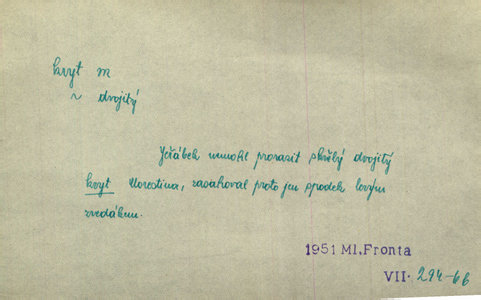 kryt m
~ dvojitý
Jeřábek nemohl prorazit skvělý dvojitý
kryt Morestina, zasahoval proto jen spodek levým
zvedákem.
1951 Ml. Fronta
VII. 294-66